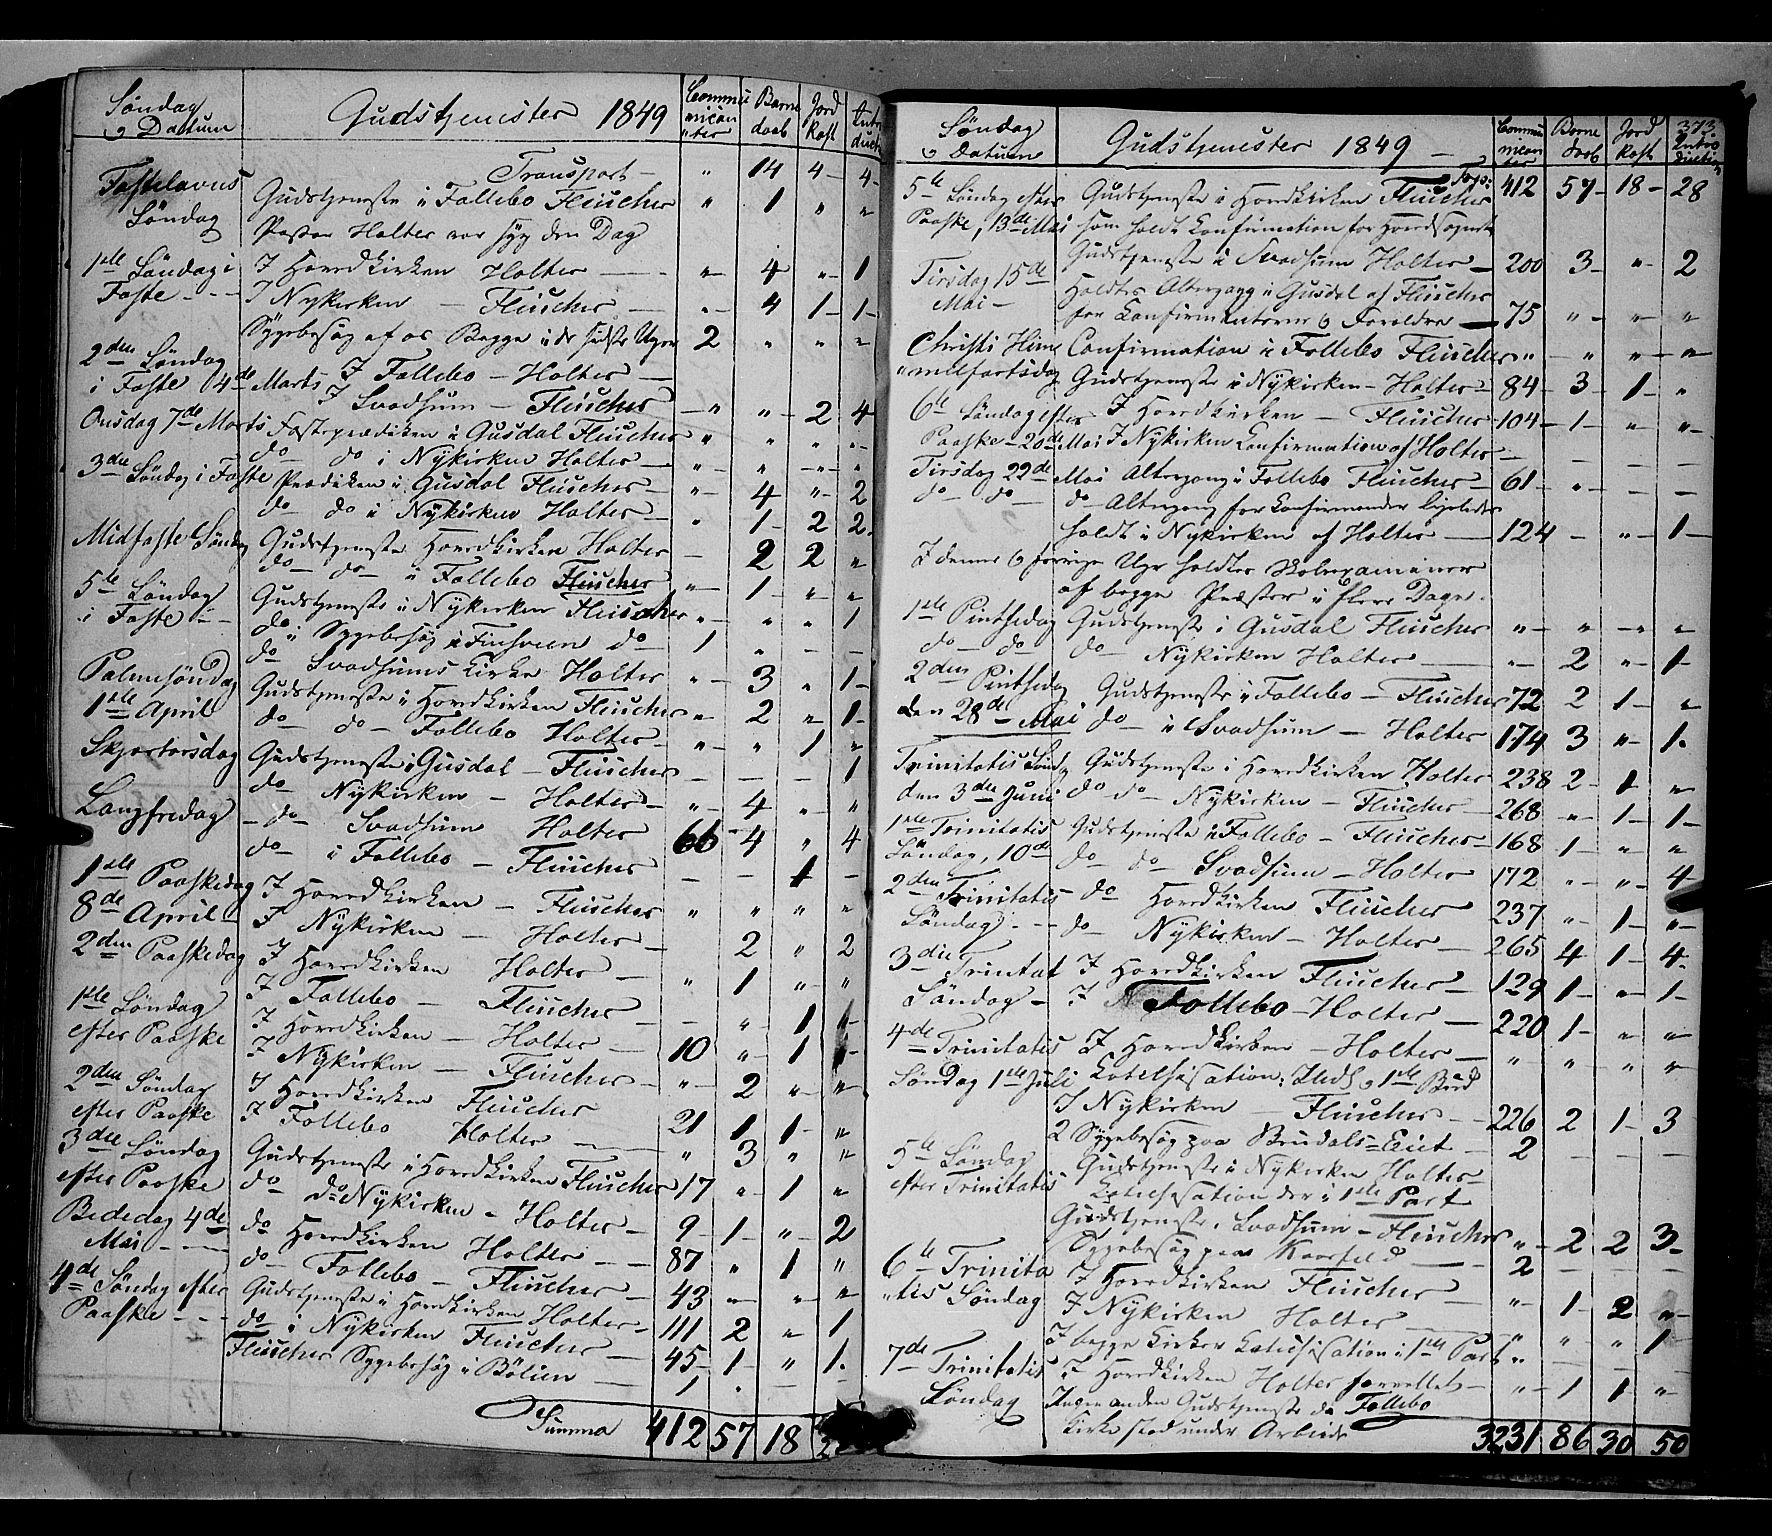 Søndag Gudstjenester 1849 Commu Barne Jord Intro
o Datum nican daab kast duct
ter
Transport - " 14 4- 4-
Fastelavns Gudstjeneste i Follebo Fleischer " 1 " "
Søndag Pastor Holter var syg den Dag
1ste Søndag i I Hovedkirken Holter - " 4 " 1
Faste - - - I Nykirken - Fleischer - " 4 1 1
Sygebesøg af os Begge i de sidste Uger 2 " " "
2den Søndag I Follebo - Holter -
i Faste 4de Marts I Svadsum - Fleischer - " " 2 4
Onsdag 7de Marts Fasteprædiken i Gusdal Fleischer " " " "
do do i Nykirken Holter - " " " "
3die Søndag i Faste Prædiken i Gusdal Fleischer - " 4 " 2
do do i Nykirken Holter - " 1 2 2
Midfaste Søndag Gudstjeneste Hovedkirken Holter - 2 2 "
do do - i Follebo Fleischer " 1 " "
5te Søndag Gudstjeneste i Nykirken Fleischer " " " 1
i Faste - - do i Sygebesøg i do - 1 " - -
do Svadsums Kirke Holter " 3 " 1
Palmesøndag Gudstjeneste i Hovedkirken Fleischer " 2 " 1
1ste April do do - Follebo Holter - " " 1 "
Skjærtorsdag Gudstjeneste i Gusdal - Fleischer - - - 1
do Nykirken - Holter - " 4 " "
Langfredag - do - Svadsum Holter 66 4 " 4
do i Follebo - Fleischer - - 1 -
1ste Paaskedag I Hovedkirken - Fleischer " " " "
8de April - I Nykirken - Holter - 2 " 2
2den Paaskedag I Hovedkirken Holter - " 1 " "
I Follebo - Fleischer - " 1 1
1ste Søndag I Hovedkirken - Holter - 10 " 1 1
efter Paaske I Nykirken - Fleischer - " 2 " "
2den Søndag I Hovedkirken Fleischer 21 1 1 "
efter Paaske I Follebo Holter - " 3 " "
3die Søndag Gudstjeneste i Hovedkirken Fleischer 17 " 1 "
efter Paaske do do Nykirken - Holter - 9 1 " 2
Bededag 4de do Hovedkirken Holter - - 87 " 1 "
Mai - do - Follebo - Fleischer - 43 " " "
4de Søndag efter Gudstjeneste i Hovedkirken Holter - 111 2 " 1
Paaske - - - do i Nykirken Fleischer - 45 1 " 1
Fleischer Sygebesøg i Bölien - 1 " - -
Summa 412 57 18
373
Søndag Gudstjenester 1849 - Commu Barne Jord Intro
o Datum nican daab kast duction
ter
5te Søndag efter Gudstjeneste i Hovedkirken Fleischer 412 57 18 28
Paaske, 13de Mai som holdt Confirmation for Hovedsognet
Gudstjeneste i Svadsum Holter - 200 3 " 2
Tirsdag 15de Holdtes Altergang i Gusdal af Fleischer
Mai - for Confirmanterne o Forældre - 75 " " "
Christi Him Confirmation i Follebo Fleischer " " " "
melfartsdag Gudstjeneste i Nykirken - Holter - 84 3 1 "
6te Søndag efter I Hovedkirken - Fleischer 104 1 " "
Paaske - 20de Mai I Nykirken Confirmation af Holter - - - -
Tirsdag 22de Mai Altergang i Follebo Fleischer - 61 " - -
do - do do - Altergang for Confirmander ligeledes
holdt i Nykirken af Holter - 124 - " 1
I denne o forrige Uge holdtes Skoleexaminer
af begge Præster i flere Dage.
1ste Pintsedag Gudstjeneste i Gusdal Fleischer " " " "
do - do do - Nykirken Holter - " 2 " 1
2den Pintsedag Gudstjeneste i Follebo - Fleischer 72 2 1 "
den 28de Mai do - i Svadsum - Holter 174 3 " 1
Trinitatis Sønd Gudstjeneste i Hovedkirken Holter 238 2 1 "
den 3die Juni do do - Nykirken - Fleischer - 268 " 1 1
1ste Trinitatis Gudstjeneste i Follebo - Fleischer - 168 1 " "
Søndag, 10de do do Svadsum - Holter 172 " " 4
2den Trinitatis do Hovedkirken Fleischer - 237 " 1 "
Søndag - - do - Nykirken - Holter - 265 4 1 4
3die Trinitat I Hovedkirken Fleischer - 129 1 " 1
Søndag - I Follebo - Holter - 220 1 " "
4de Trinitatis I Hovedkirken - Holter - " " " "
Søndag 1ste Juli
I Nykirken - Fleischer - - 226 2 1 3
2 Sygebesøg paa - 2 - - -
5te Søndag Gudstjeneste i Nykirken Holter -
efter Trinitatis Catechisation der i 1ste Part
Gudstjeneste i Svadsum - Fleischer " 2 2 3
Sygebesøg paa - 2 - - -
6te Trinita I Hovedkirken Fleischer - " 1 2 "
tis Søndag I Nykirken Holter - " " " 1
I begge Kirker Catechisation i 1ste Part "
7de Trinitatis I Hovedkirken Holter forrettet - " 1 1 "
Søndag Ingen anden Gudstjeneste da Follebo
Kirke stod under Arbeide 3231 86 30 50